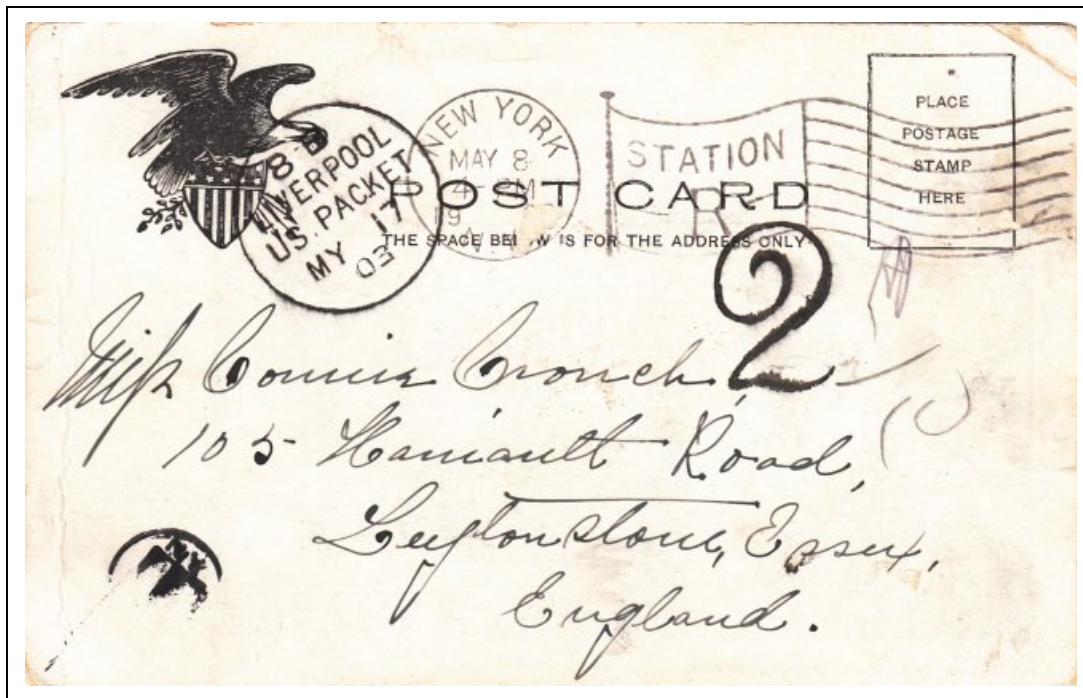 8 B
LIVERPOOL
US. PACKET
MY 17
03
NEW YORK
MAY 8
19
STATION
R
PLACE
POSTAGE
STAMP
HERE
POST CARD
THE SPACE BELOW IS FOR THE ADDRESS ONLY
2
Miss Connie Crouch,
105 Hainault Road,
Leytonstone, Essex,
England.